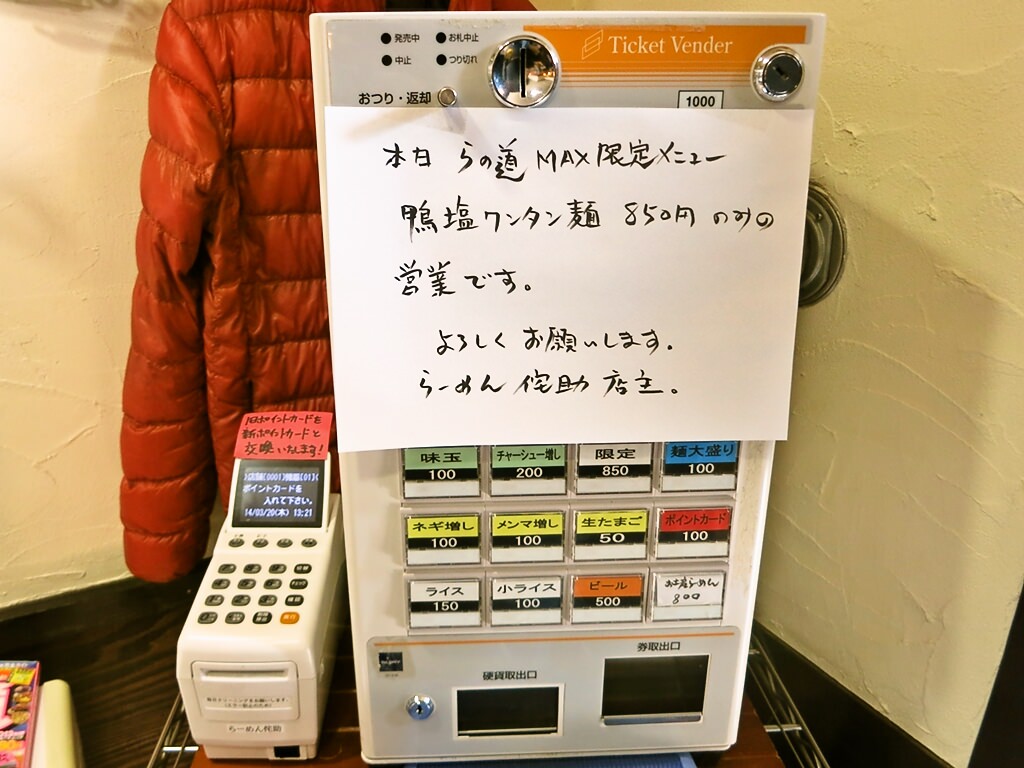 発売中 お札中止
中止 つり切れ
Ticket Vender
おつり・返却
1000
本日 らの道 MAX限定メニュー
鴨塩ワンタン麺 850円 のみの
営業です。
よろしく お願いします。
らーめん 侘助 店主。
旧ポイントカードを
新ポイントカードと
交換いたします!
ポイントカードを
入れて下さい。
14/03/20(木) 13:21
味玉 チャーシュー増し 限定 麺大盛り
100 200 850 100
ネギ増し メンマ増し 生たまご ポイントカード
100 100 50 100
ライス 小ライス ビール
150 100 500 800
硬貨取出口 券取出口
らーめん侘助